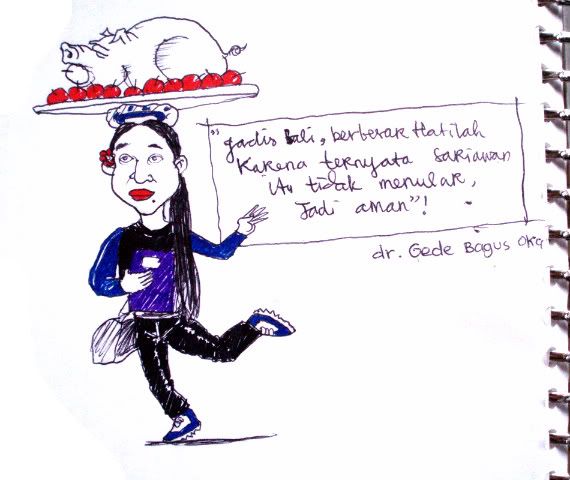 "gadis Bali, berbesar Hatilah
Karena ternyata Sariawan
itu tidak menular,
Jadi aman"!
dr. Gede Bagus Oka